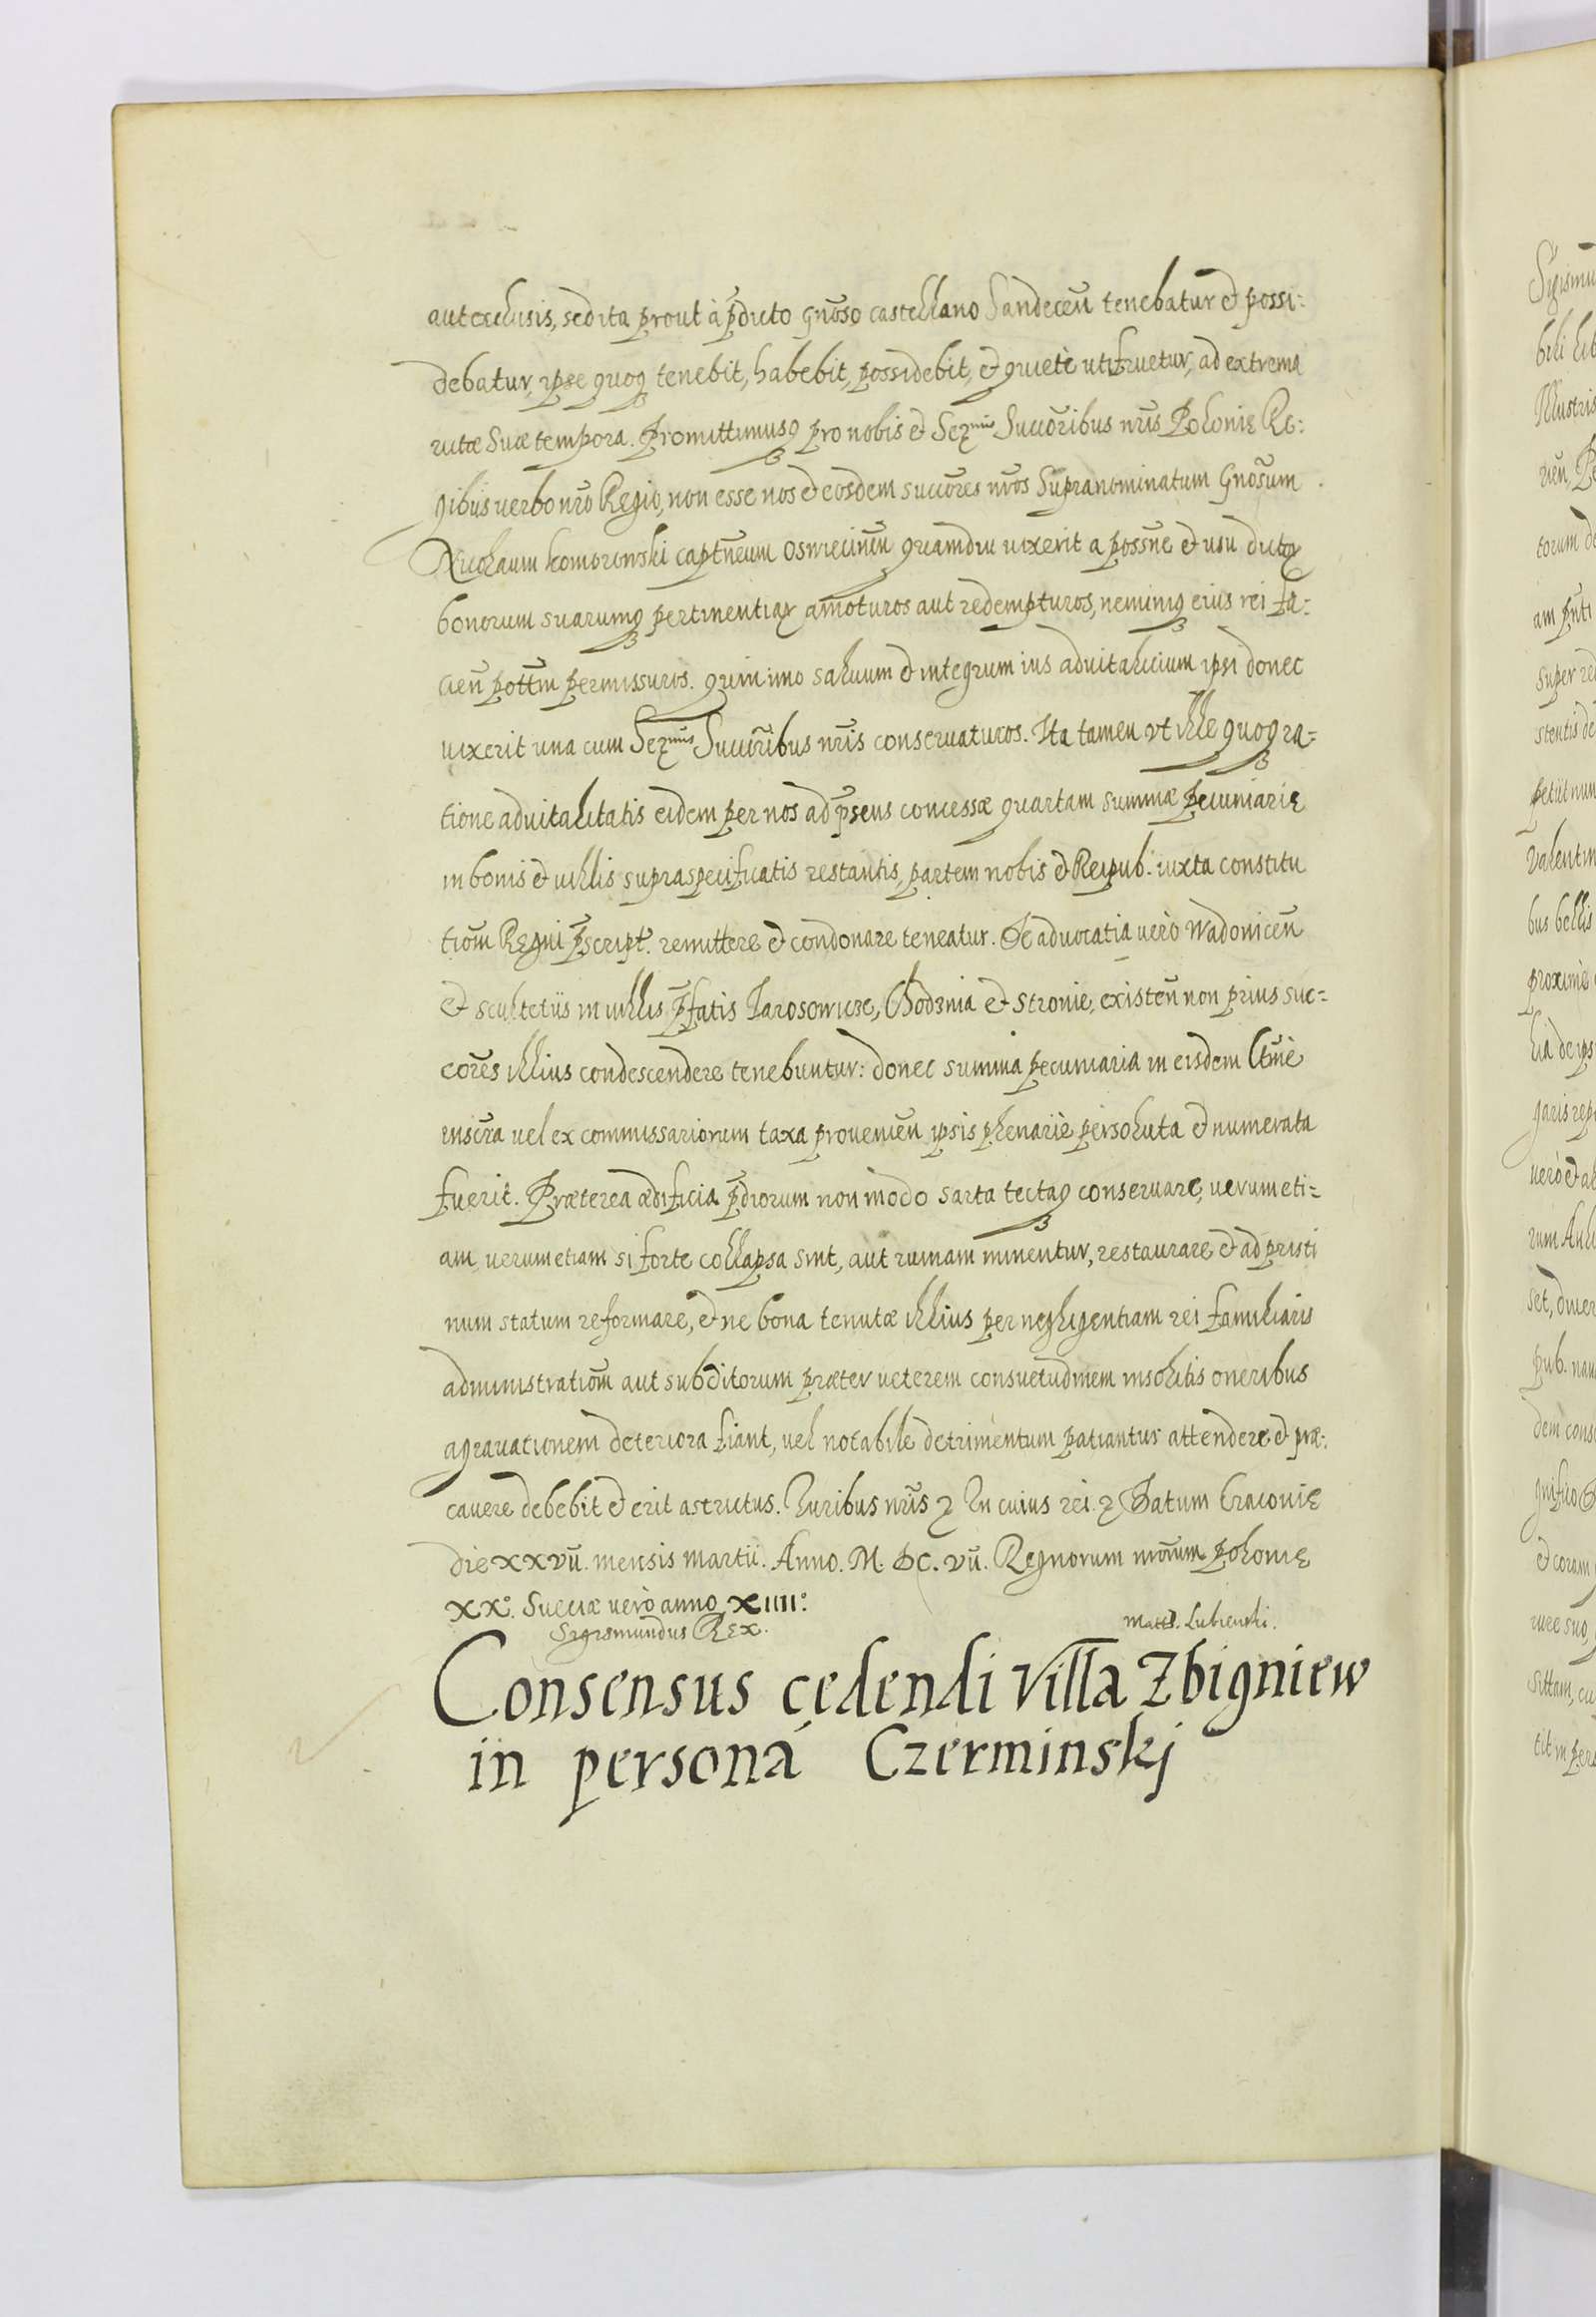 aut exclusis, sed ita prout à p̃dicto Gñoso castellano Sandeceñ tenebatur et possi=
debatur, ipse quoq tenebit, habebit, possidebit, et quietè utifruetur, ad extrema
vitæ suæ tempora. Promittimusq pro nobis et Serᵐⁱˢ Succõribus nr̃is Polonię Re=
gibus verbo nrõ Regio, non esse nos et eosdem succõres nr̃os Supranominatum Gnõsum
Nicolaum Komorowski captñeum Oswiecimeñ quamdiu vixerit a possñe et usu dictoꝝ
bonorum suarumq pertinentiaꝝ amoturos aut redempturos, neminiq eius rei fa=
cieñ pott̃em permissuros. quin imo saluum et integrum ius aduitalicium ipsi donec
uixerit una cum Serᵐⁱˢ Succõribus nr̃is conseruaturos. Ita tamen vt ille quoq ra=
tione aduitalitatis eidem per nos ad p̃sens concessæ quartam summæ pecuniarię
in bonis et villis supraspecificatis restantis, partem nobis et Reipub. iuxta constitu
tiõm Regni p̃script. remittere et condonare teneatur. De aduocatia verò Wadoviceñ
et scultetiis in villis p̃fatis Jarosowicze, Chodznia et Stronie, existeñ non prius suc=
cõres illius condescendere tenebuntur: donec summa pecuniaria in eisdem ltm̃e
inscr̃a uel ex commissariorum taxa prouenieñ ipsis plenariè persoluta et numerata
fuerit. Præterea ædificia p̃diorum non modo sarta tectaq conseruare, uerum eti=
am, uerum etiam si forte collapsa sint, aut ruinam minentur, restaurare et ad pristi
num statum reformare, et ne bona tenutæ illius per negligentiam rei familiaris
administratiõm aut subditorum præter ueterem consuetudinem insolitis oneribus
agrauationem deteriora fiant, vel notabile detrimentum patiantur attendere et præ=
cauere debebit et erit astrictus. Iuribus nr̃is ꝛ In cuius rei ꝛ Datum Cracouię
die xxvii. mensis martii. Anno. M. DC. vii. Regnorum nrõrum Polonię
xx°. Sueciæ verò anno xiiii°.
Sigismundus Rex. Matth. Lubienski.
Consensus cedendi Villa Zbigniew
in personã Czerminskj